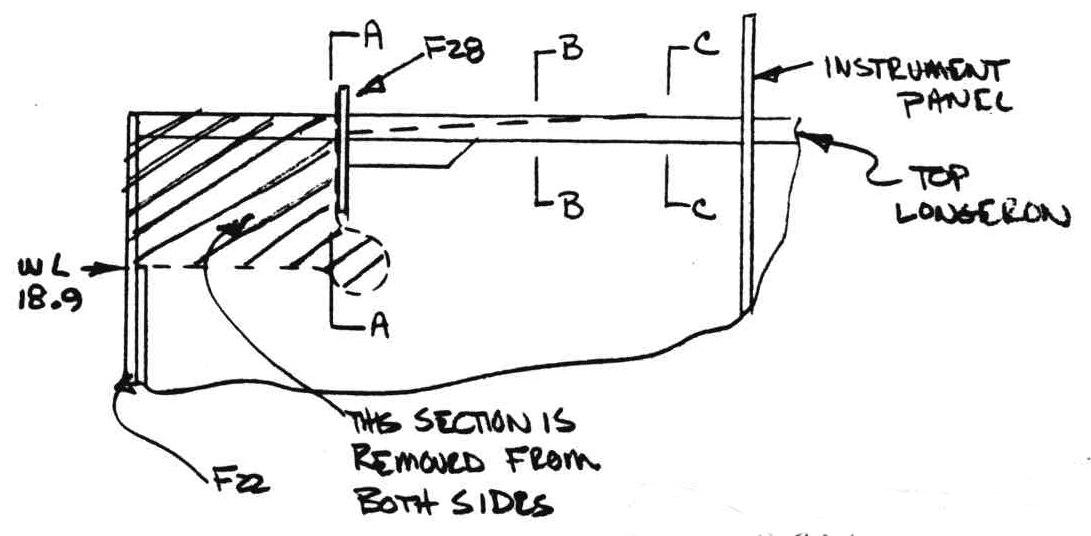 A
F28
B
C
INSTRUMENT
PANEL
B
C
TOP
LONGERON
WL
18.9
A
THIS SECTION IS
REMOVED FROM
BOTH SIDES
F22